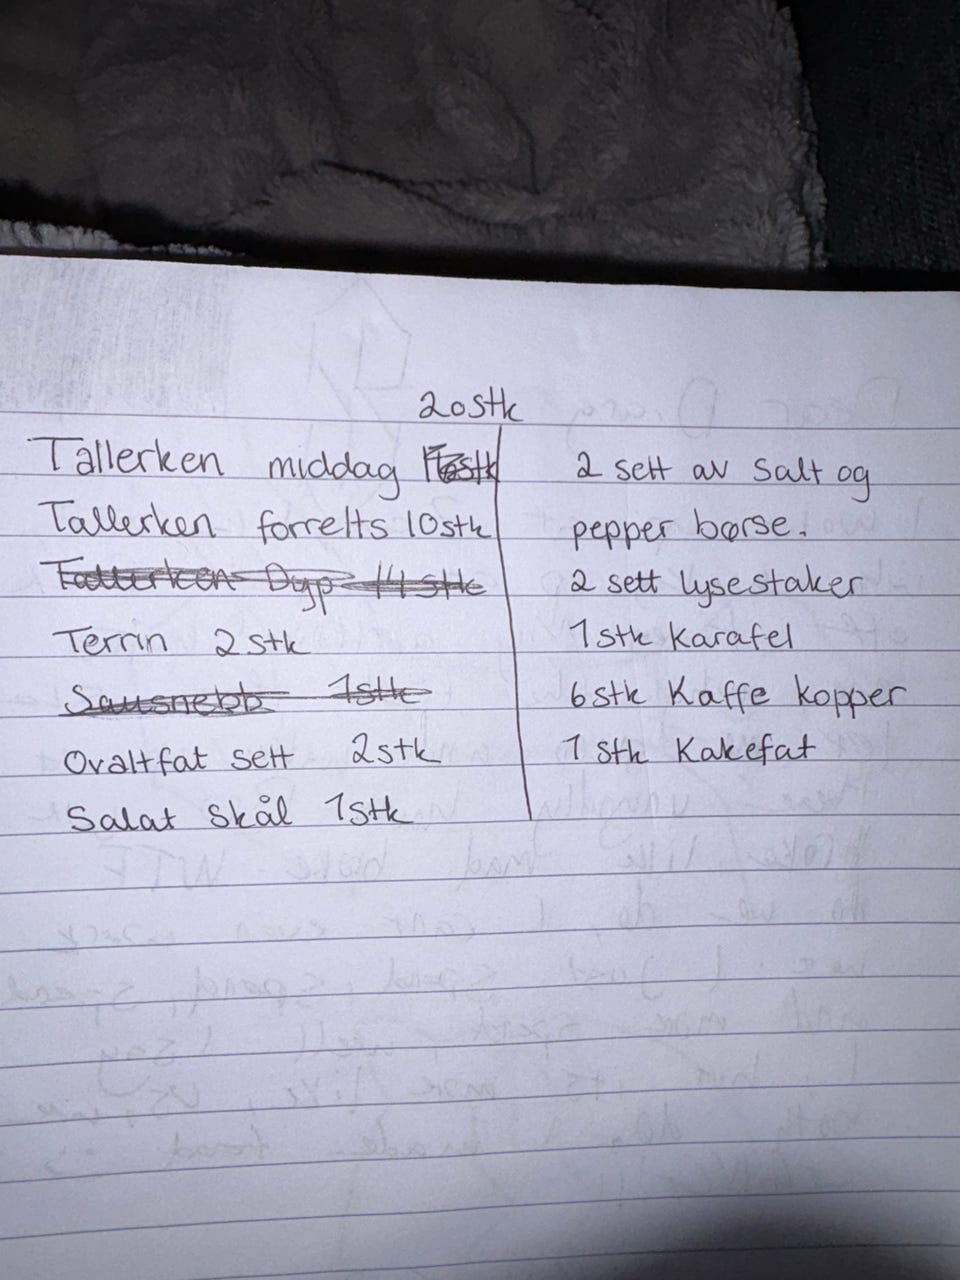 20stk
Tallerken middag
Tallerken forretts 10stk
Tallerken Dyp 14 stk
Terrin 2stk
Sausnebb 1stk
Ovaltfat sett 2stk
Salat skål 1stk
2 sett av salt og
pepper børse.
2 sett lysestaker
1stk Karafel
6stk Kaffe kopper
1 stk Kakefat